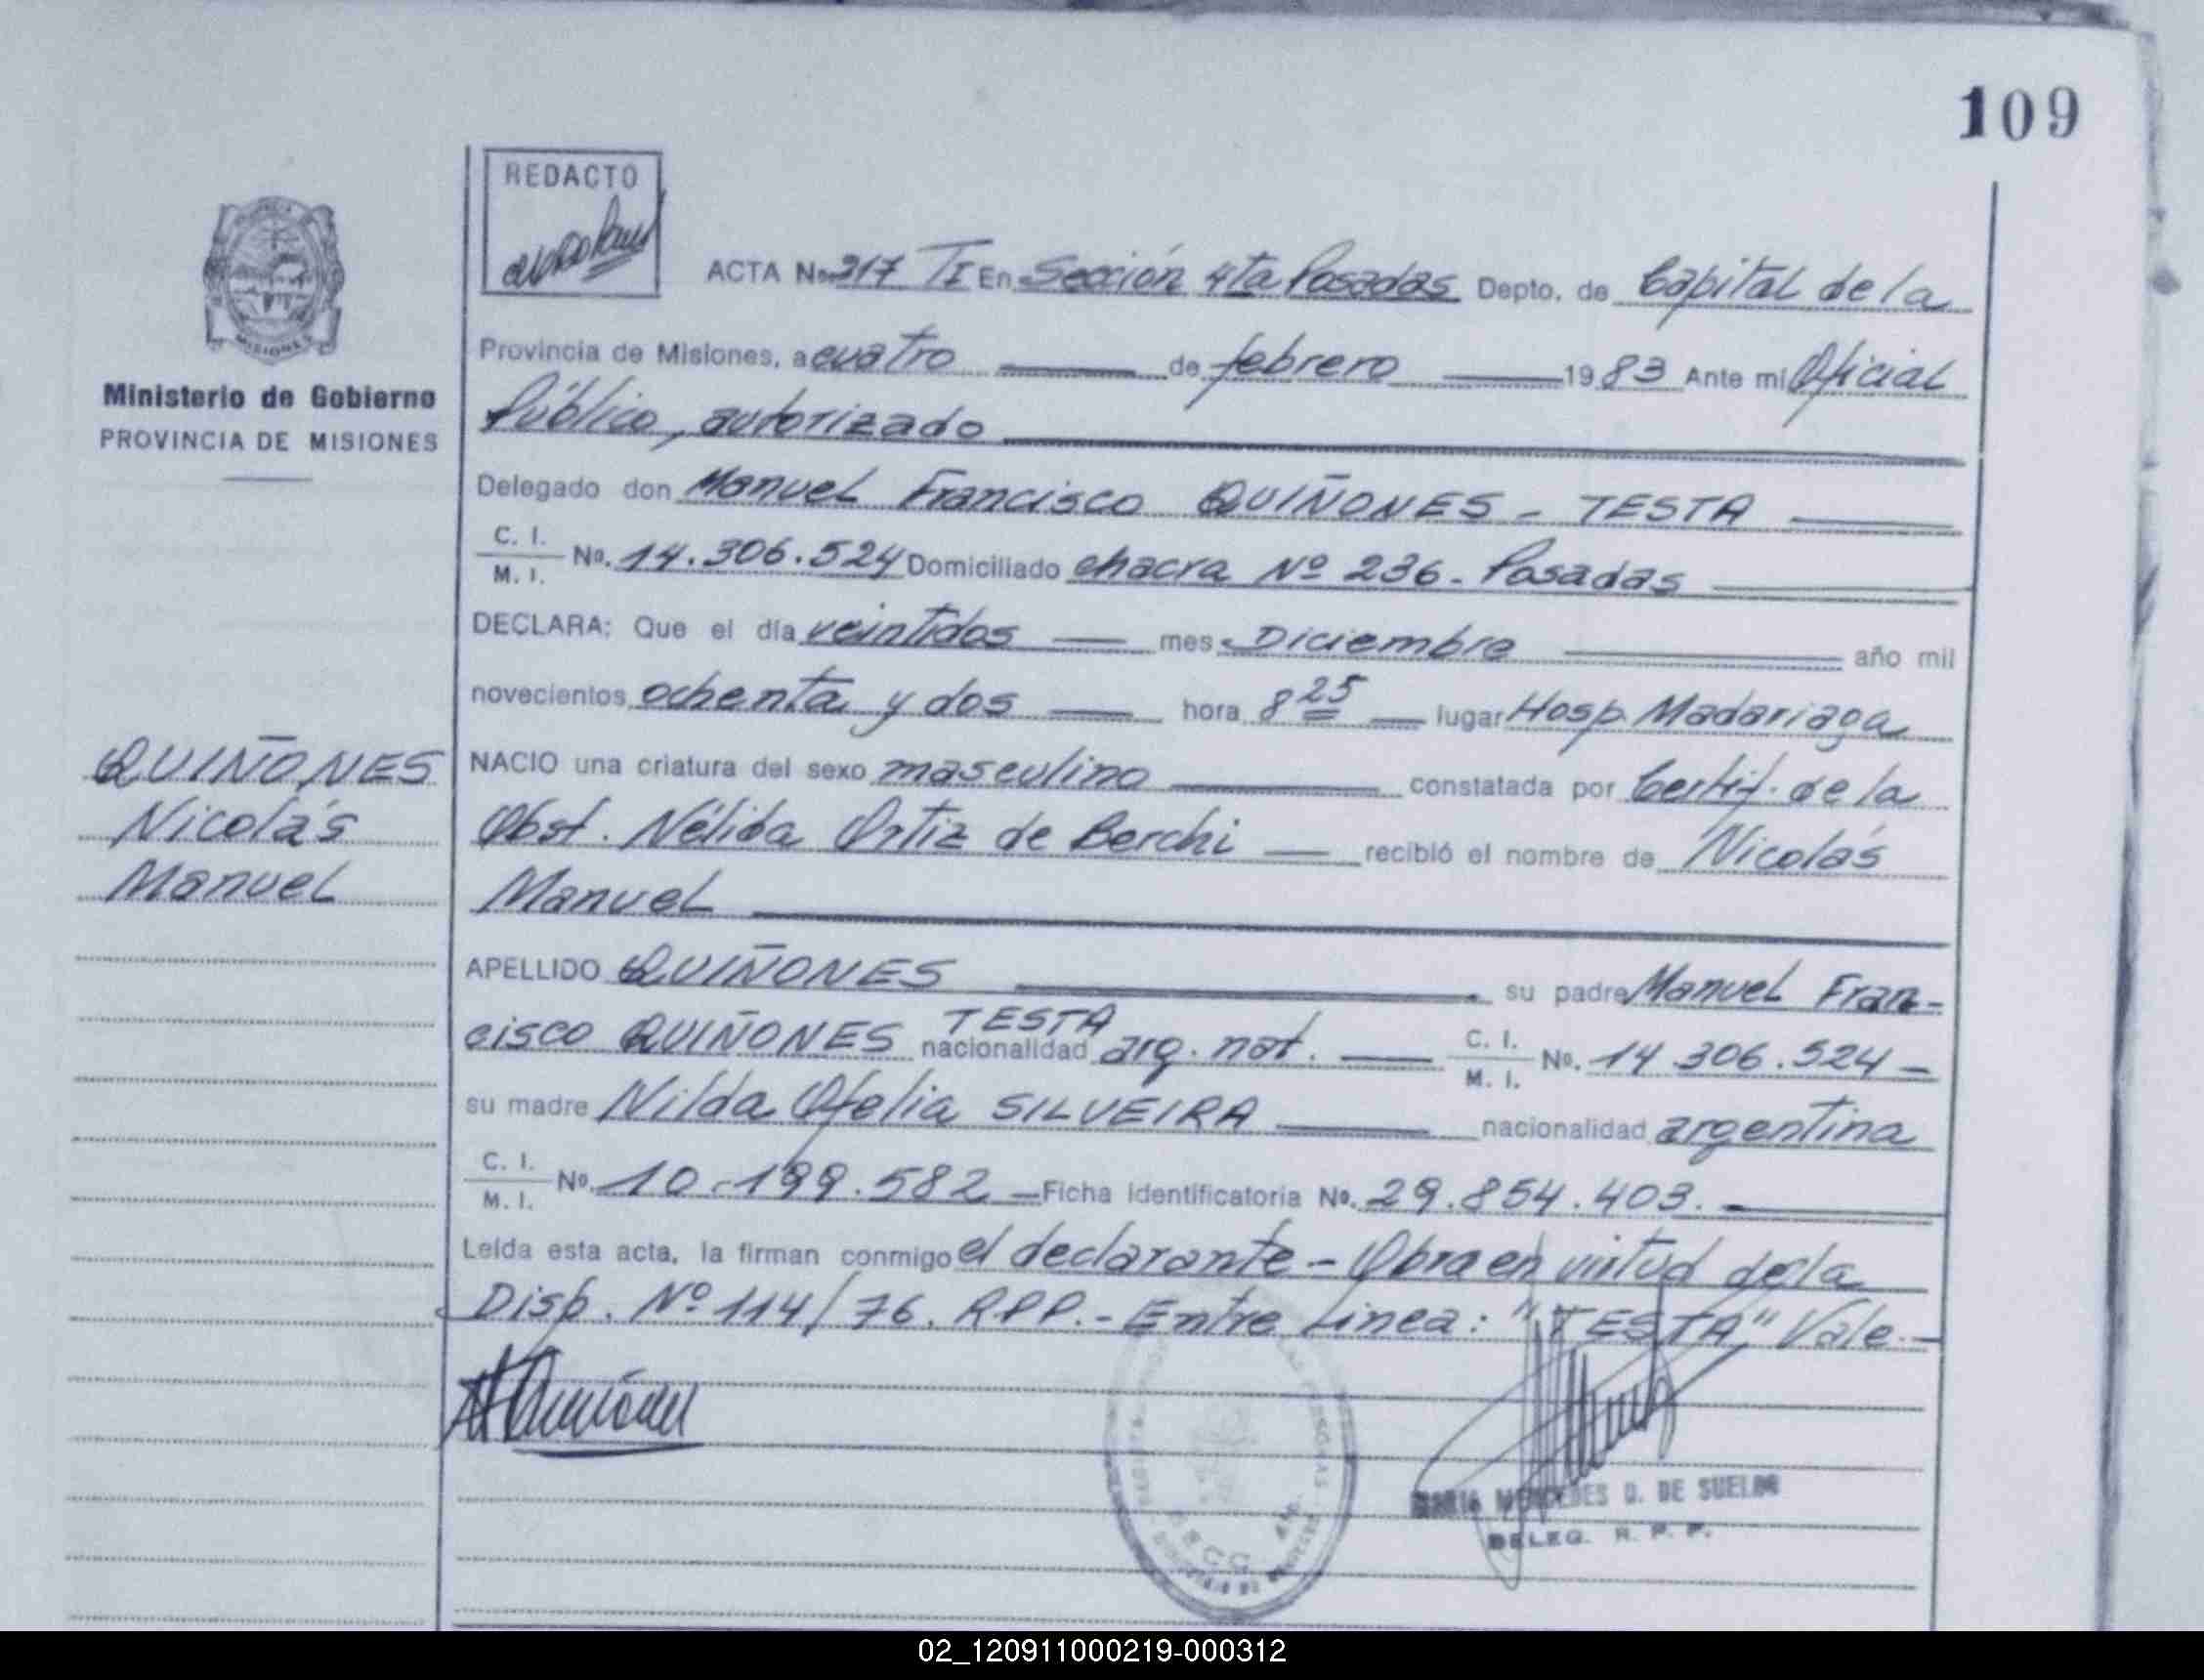 109
REDACTO
ACTA No. 217 TI En Sección 4ta Posadas Depto. de Capital de la
Provincia de Misiones, a cuatro de febrero 1983 Ante mi Oficial
Ministerio de Gobierno
PROVINCIA DE MISIONES
Público, autorizado
Delegado don Manuel Francisco QUIÑONES - TESTA
C. I.
M. I. No. 14.306.524 Domiciliado chacra Nº 236 - Posadas
DECLARA: Que el día veintidos mes Diciembre año mil
novecientos ochenta y dos hora 8 25 lugar Hosp. Madariaga
QUIÑONES
Nicolás
Manuel
NACIO una criatura del sexo masculino constatada por Certif. de la
Obst. Nélida Ortiz de Berchi recibió el nombre de Nicolás
Manuel
APELLIDO QUIÑONES su padre Manuel Fran-
cisco QUIÑONES TESTA nacionalidad arg. nat. C. I. M. I. No. 14.306.524 -
su madre Nilda Ofelia SILVEIRA nacionalidad argentina
C. I.
M. I. No. 10.199.582 - Ficha identificatoria No. 29.854.403. -
Leída esta acta, la firman conmigo el declarante - Obra en virtud de la
Disp. Nº 114/76. R.P.P. - Entre Linea: "TESTA" Vale. -
MARIA MERCEDES D. DE
DELEG. R. P. P.
02_120911000219-000312